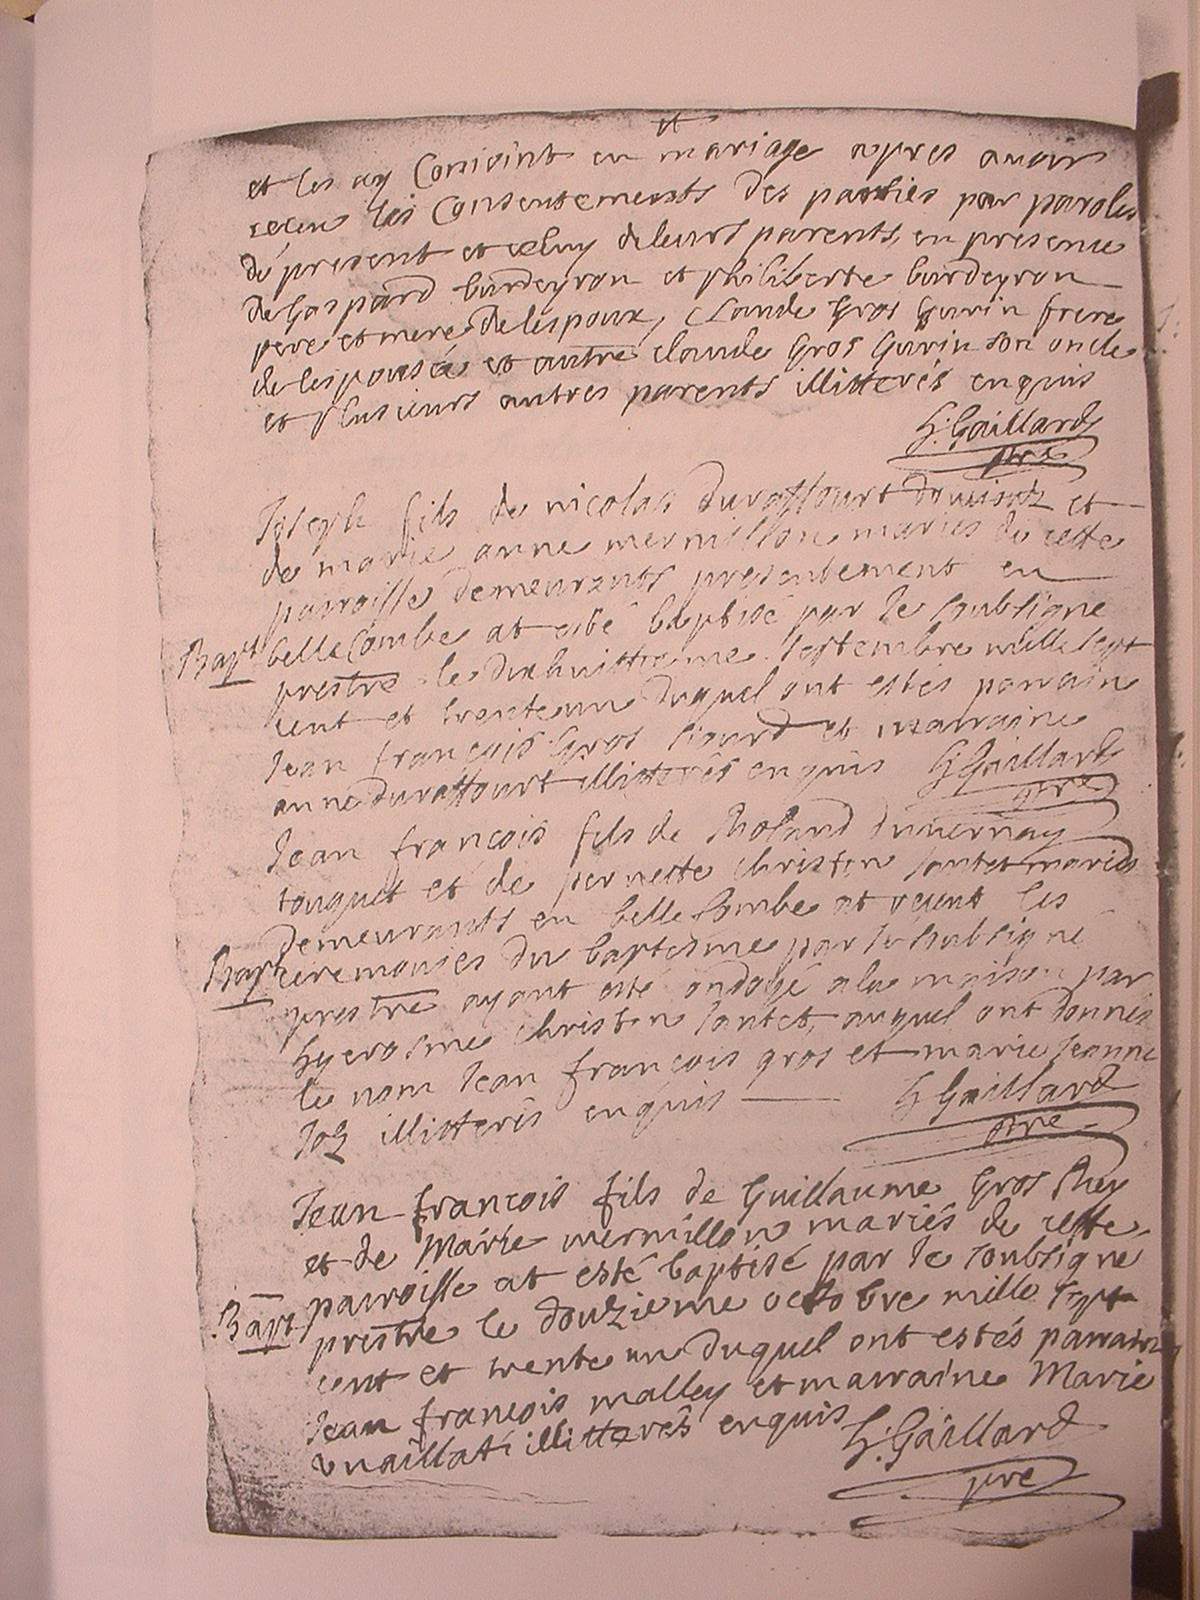 et les ay Conioint en mariage apres avoir
receu les Consentements des parties par paroles
de present et celuy de leurs parents, en presence
de Gaspard burdeyron et philiberte burdeyron
pere et mere de lespoux, claude Gros Gurin frere
de lespousée et autre claude Gros Gurin son oncle
et plusieurs autres parents illitterés enquis
h: Gaillard
pre
Joseph fils de nicolas duraffourt et
de marie anne mermillion mariés de cette
parroisse demeurants presentement en
Bapt bellecombe at esté baptisé par le soubsigne
prestre le dixhuittieme septembre mille sept
cent et trente un duquel ont estés parrain
Jean françois Gros et marraine
anne duraffourt illitterés enquis h Gaillard
pre
Jean françois fils de Roland duvernay
touquet et de pernette christin mariés
demeurants en belle Combe at receut les
Bapt ceremonies du baptesme par le subsigné
prestre ayant esté ondoyé a la maison par
hyerosme christin auquel ont donnés
le nom Jean françois gros et marie Jeanne
Joz illitterés enquis h Gaillard
pre
Jean françois fils de Guillaume Gros Rey
et de Marie mermillon mariés de cette
parroisse at esté baptisé par le soubsigne
Bapt prestre le douzieme octobre mille sept
cent et trente un duquel ont estés parrain
Jean françois malley et marraine Marie
illitterés enquis h: Gaillard
pre